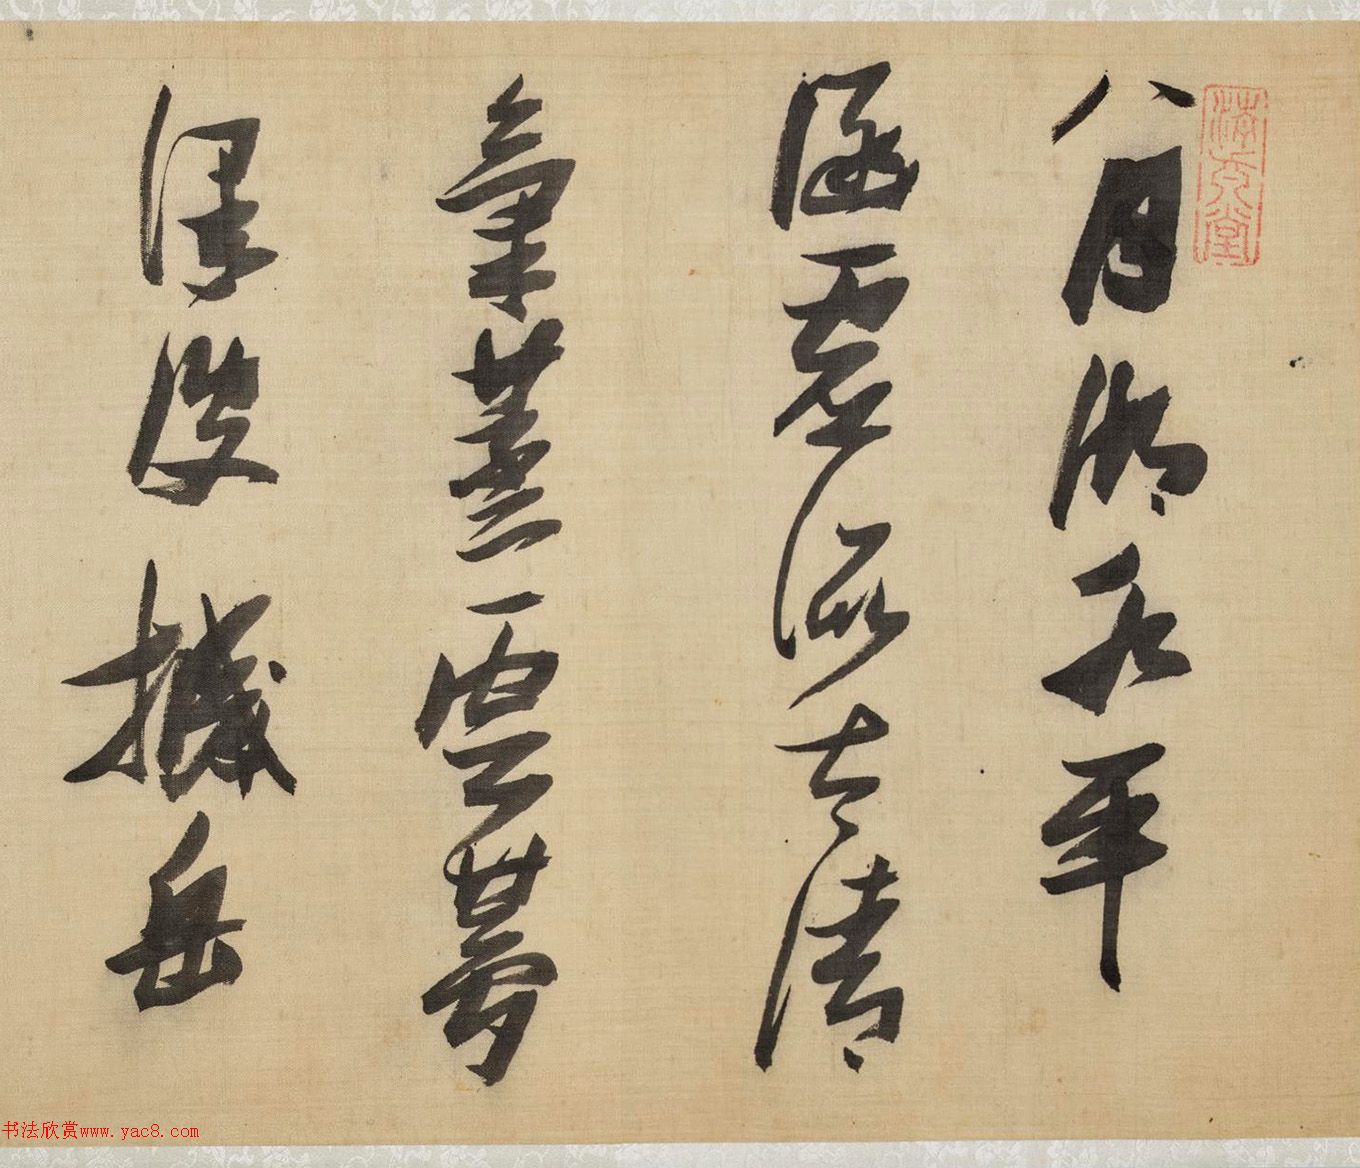 八月湖水平
涵虛混太清
氣蒸雲夢
澤波撼岳
书法欣赏www.yac8.com